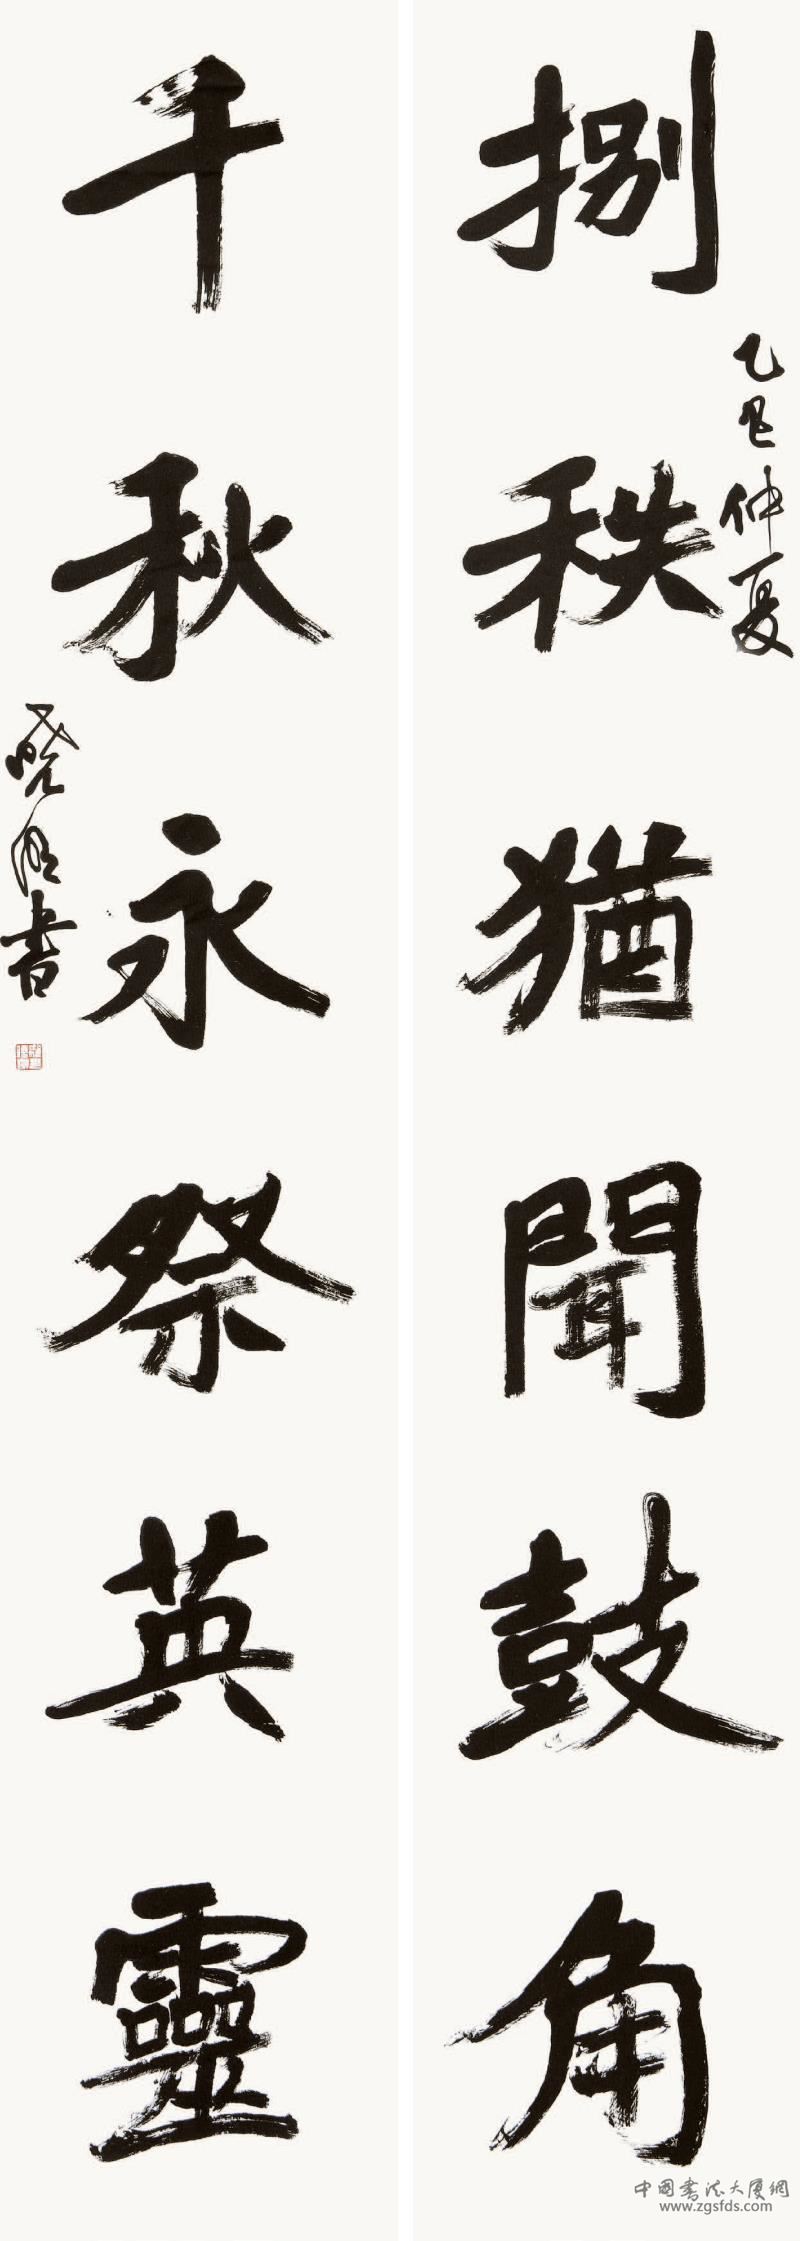 捌秩猶聞鼓角
乙巳仲夏
千秋永祭英靈
曉明書
中國書法大厦網
www.zgsfds.com